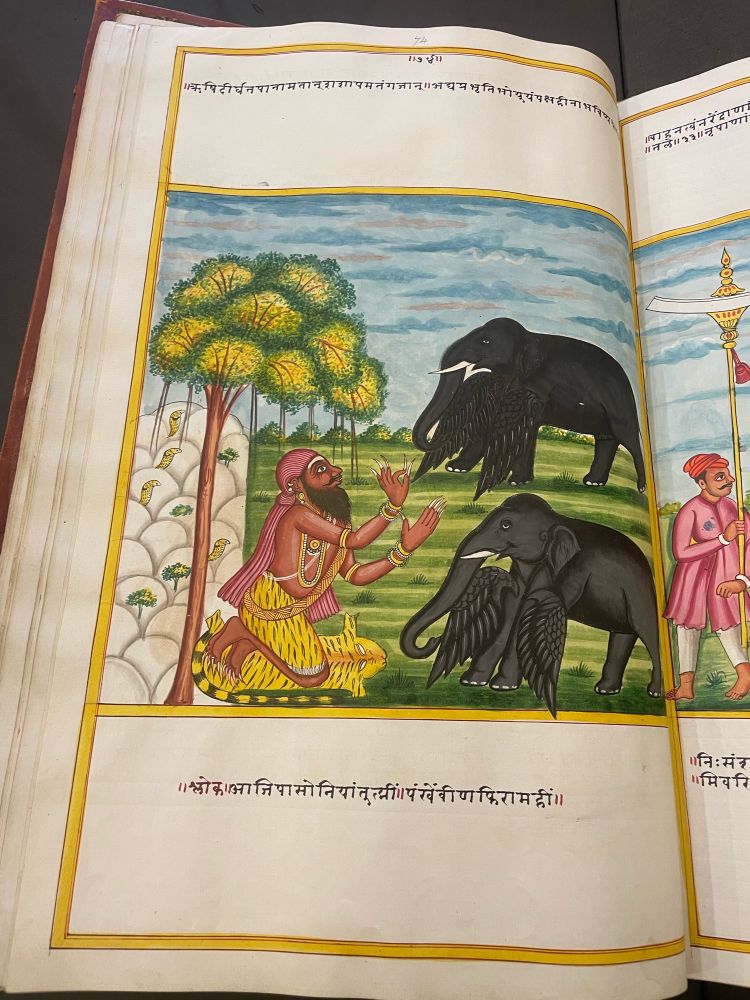 74
॥७४॥
॥ऋषिदीर्घतपानामतान्शशापमतंगजान्॥अद्यप्रभृतिभोयूयंपक्षहीनाभविष्य
॥श्लोक॥आजिपासोनियांतुम्हीं॥पंखेंवीणफिरामहीं॥
वाहनत्वंनरेंद्राणां
॥नले॥
॥निःसंश
॥मिवरि